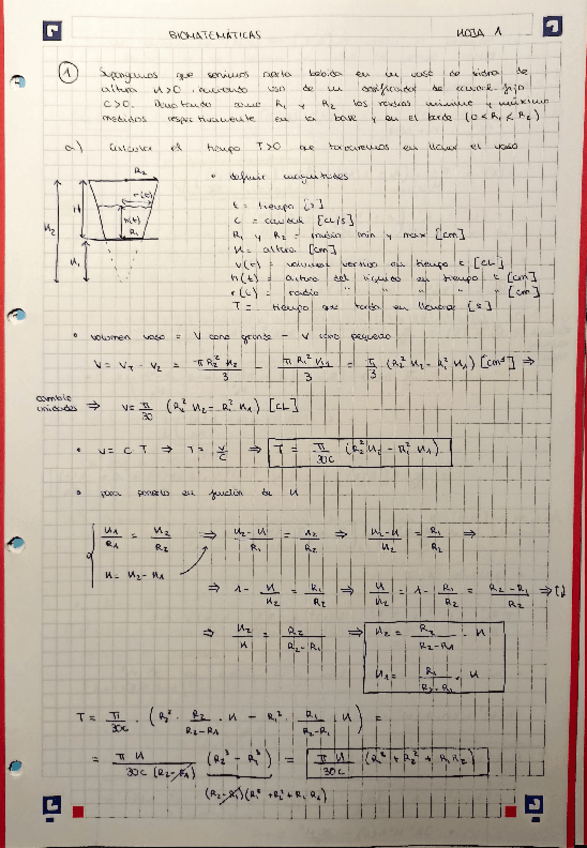 BIOMATEMÁTICAS HOJA 1
① Supongamos que servimos cierta bebida en un vaso de sidra de
altura H>0, haciendo uso de un dosificador de caudal fijo
C>0. Denotando como R₁ y R₂ los radios mínimo y máximo
medidos respectivamente en la base y en el borde (0<R₁<R₂)
a) Calcular el tiempo T>0 que tardaremos en llenar el vaso
• definir magnitudes
R₂
r(t)
H
h(t)
R₁
H₂
H₁
t = tiempo [s]
C = caudal [CL/s]
R₁ y R₂ = radio min y max [cm]
H = altura [cm]
V(t) = volumen vertido en tiempo t [CL]
h(t) = altura del líquido en tiempo t [cm]
r(t) = radio " " " " [cm]
T = tiempo que tarda en llenarse [s]
• volumen vaso = V cono grande - V cono pequeño
V = V_T - V_2 = πR₂²H₂/3 - πR₁²H₁/3 = π/3 (R₂²H₂ - R₁²H₁) [cm³] ⇒
cambio unidades ⇒ V = π/30 (R₂² H₂ - R₁² H₁) [CL]
• V = C T ⇒ T = V/C ⇒ T = π/30C (R₂² H₂ - R₁² H₁)
• para ponerlo en función de H
H₁/R₁ = H₂/R₂ ⇒ (H₂-H)/R₁ = H₂/R₂ ⇒ (H₂-H)/H₂ = R₁/R₂ ⇒
H = H₂ - H₁
⇒ 1 - H/H₂ = R₁/R₂ ⇒ H/H₂ = 1 - R₁/R₂ = (R₂-R₁)/R₂ ⇒
⇒ H₂/H = R₂/(R₂-R₁) ⇒ H₂ = R₂/(R₂-R₁) · H
H₁ = R₁/(R₂-R₁) · H
T = π/30C · (R₂² · R₂/(R₂-R₁) · H - R₁² · R₁/(R₂-R₁) · H) =
= πH/30C(R₂-R₁) (R₂³ - R₁³) = πH/30C (R₁² + R₂² + R₁R₂)
(R₂-R₁)(R₁² + R₂² + R₁R₂)